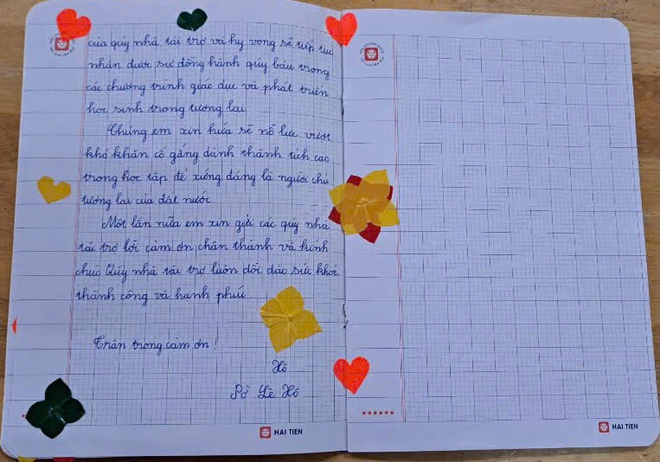 của quý nhà tài trợ và hy vọng sẽ tiếp tục
nhận được sự đồng hành quý báu trong
các chương trình giáo dục và phát triển
học sinh trong tương lai.
Chúng em xin hứa sẽ nỗ lực vượt
khó khăn cố gắng dành thành tích cao
trong học tập để xứng đáng là người chủ
tương lai của đất nước.
Một lần nữa em xin gửi các quý nhà
tài trợ lời cảm ơn chân thành và kính
chúc Quý nhà tài trợ luôn dồi dào sức khỏe
thành công và hạnh phúc
Trân trọng cảm ơn!
Hô
Pờ Lê Hô
HAI TIEN
HAI TIEN